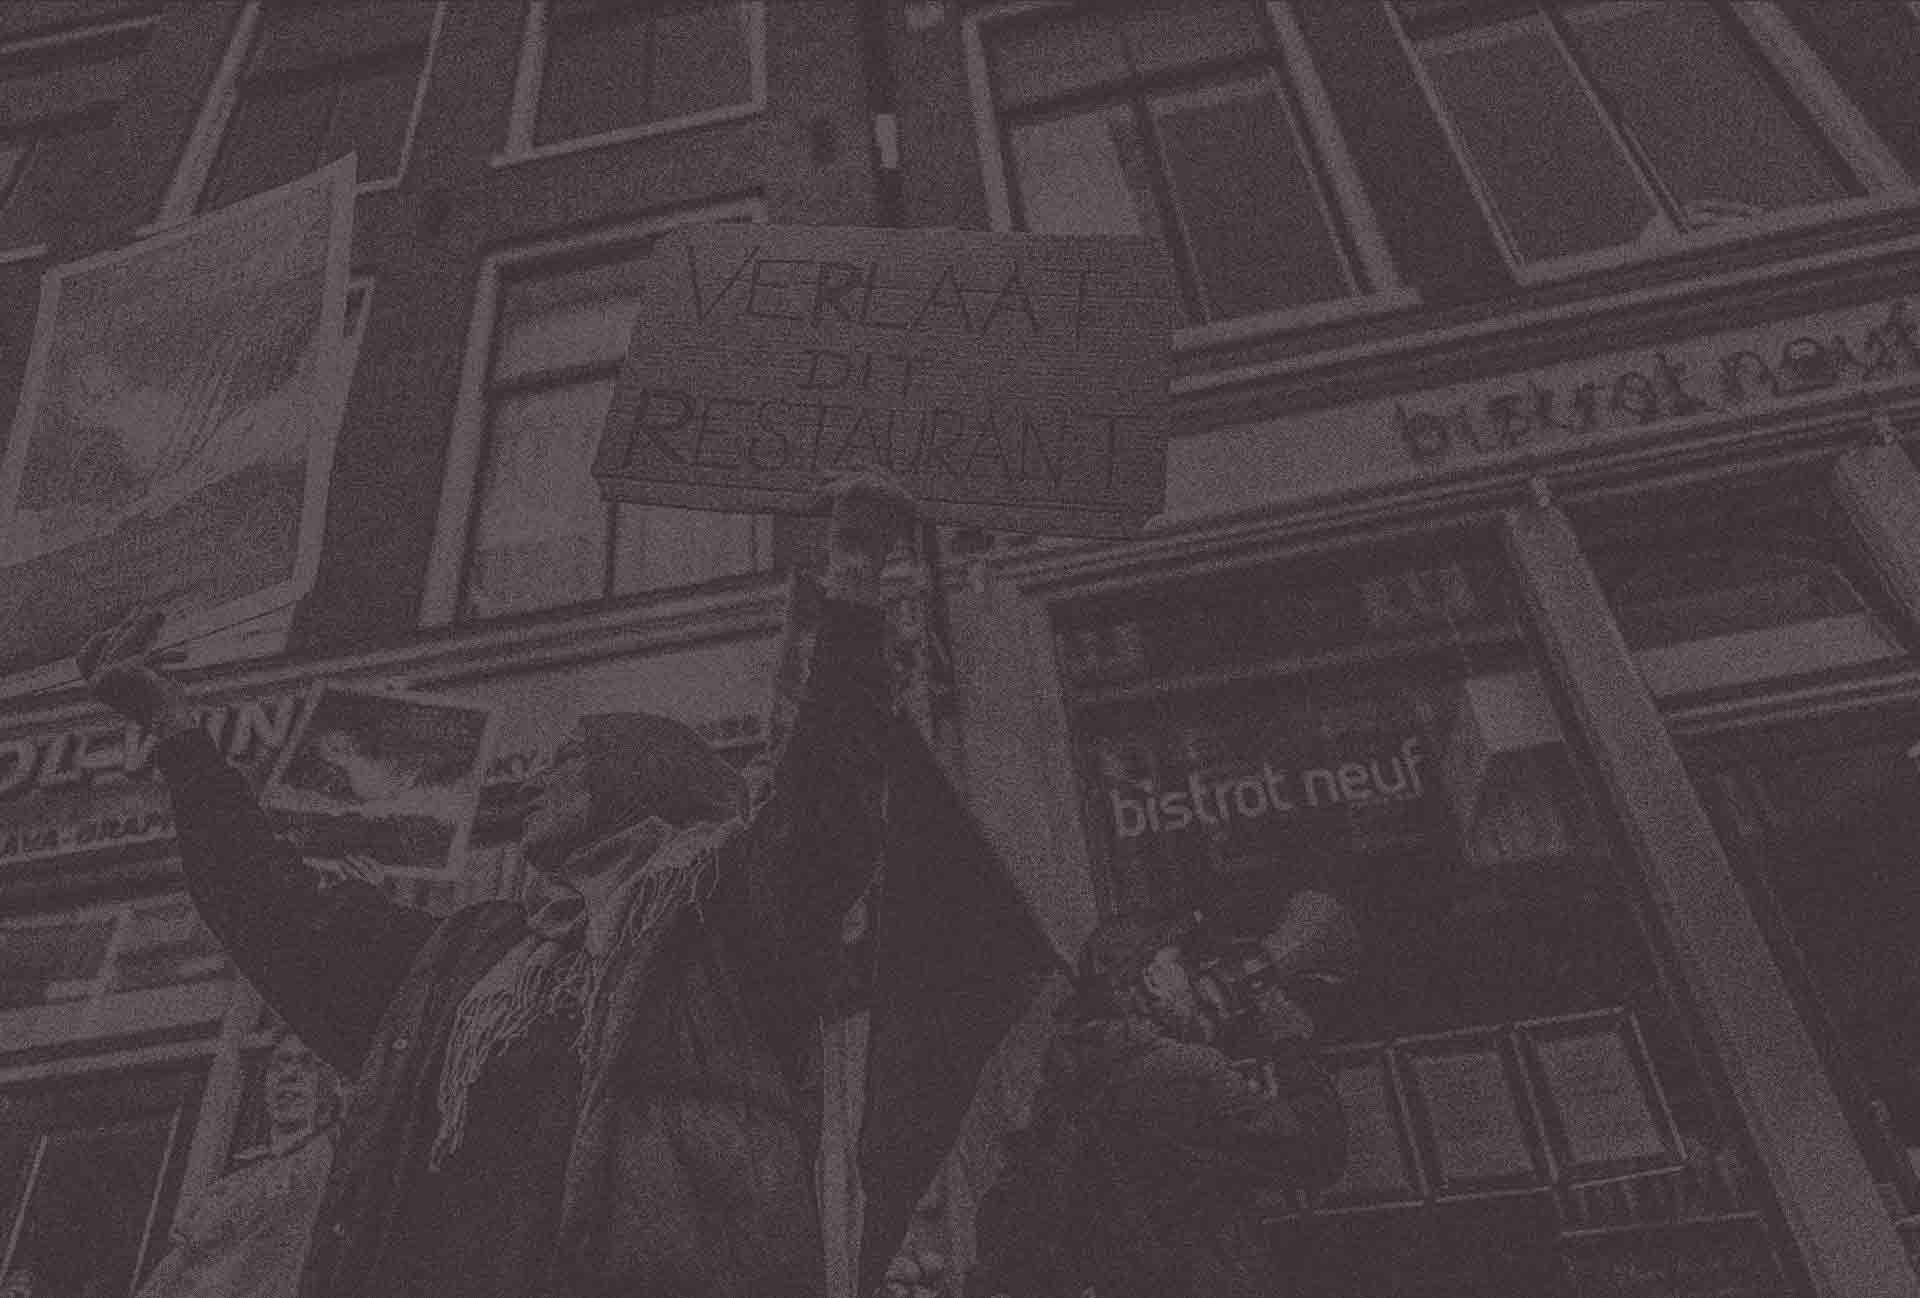 VERLAAT
DIT
RESTAURANT
bistrot neuf
bistrot neuf